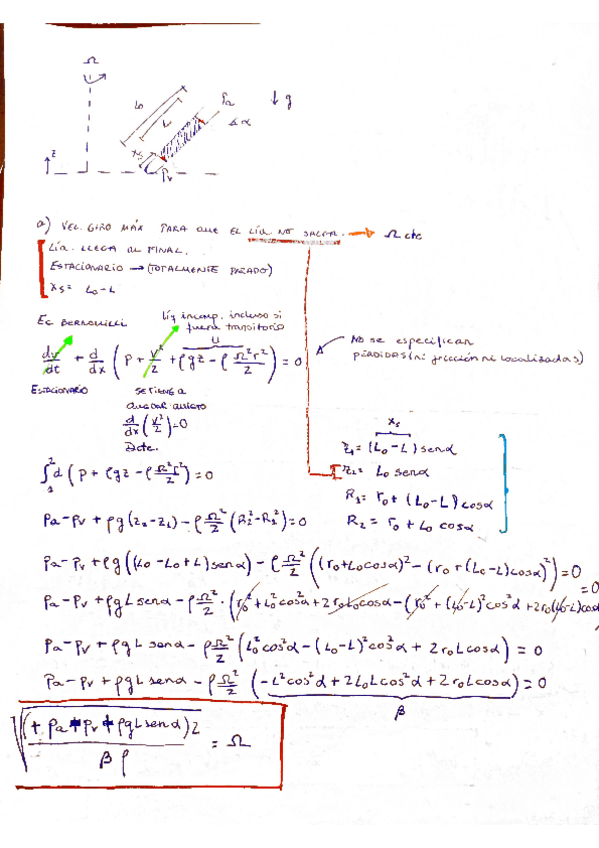 Ω
L₀
L
Pa
↓ g
∡ α
xs
z
Pv
a) VEL. GIRO MÁX PARA QUE EL LÍQ. NO SALGA. → Ω cte
LÍQ. LLEGA AL FINAL.
ESTACIONARIO → (TOTALMENTE PARADO)
xs = L₀-L
EC BERNOUILLI
Líq incomp. incluso si fuera transitorio
U
dv/dt + d/dx (P + v²/2 + ρgz - ρ Ω²r²/2) = 0
No se especifican
pérdidas (ni fricción ni localizadas)
ESTACIONARIO
SE TIENE Q
QUEDAR QUIETO
d/dx (v²/2) = 0
cte.
∫₁² d (P + ρgz - ρ Ω²r²/2) = 0
xs
z₁ = (L₀-L) senα
z₂ = L₀ senα
R₁ = r₀ + (L₀-L) cosα
R₂ = r₀ + L₀ cosα
Pa - Pv + ρg(z₂-z₁) - ρ Ω²/2 (R₂²-R₁²) = 0
Pa - Pv + ρg((L₀-L₀+L) senα) - ρ Ω²/2 ((r₀+L₀cosα)² - (r₀+(L₀-L)cosα)²) = 0
Pa - Pv + ρgL senα - ρ Ω²/2 · (r₀² + L₀²cos²α + 2r₀L₀cosα - (r₀² + (L₀-L)²cos²α + 2r₀(L₀-L)cosα = 0
Pa - Pv + ρgL senα - ρ Ω²/2 (L₀²cos²α - (L₀-L)²cos²α + 2r₀Lcosα) = 0
Pa - Pv + ρgL senα - ρ Ω²/2 (-L²cos²α + 2L₀Lcos²α + 2r₀Lcosα) = 0
β
√((+Pa + Pv + ρgL senα)2 / βρ) = Ω